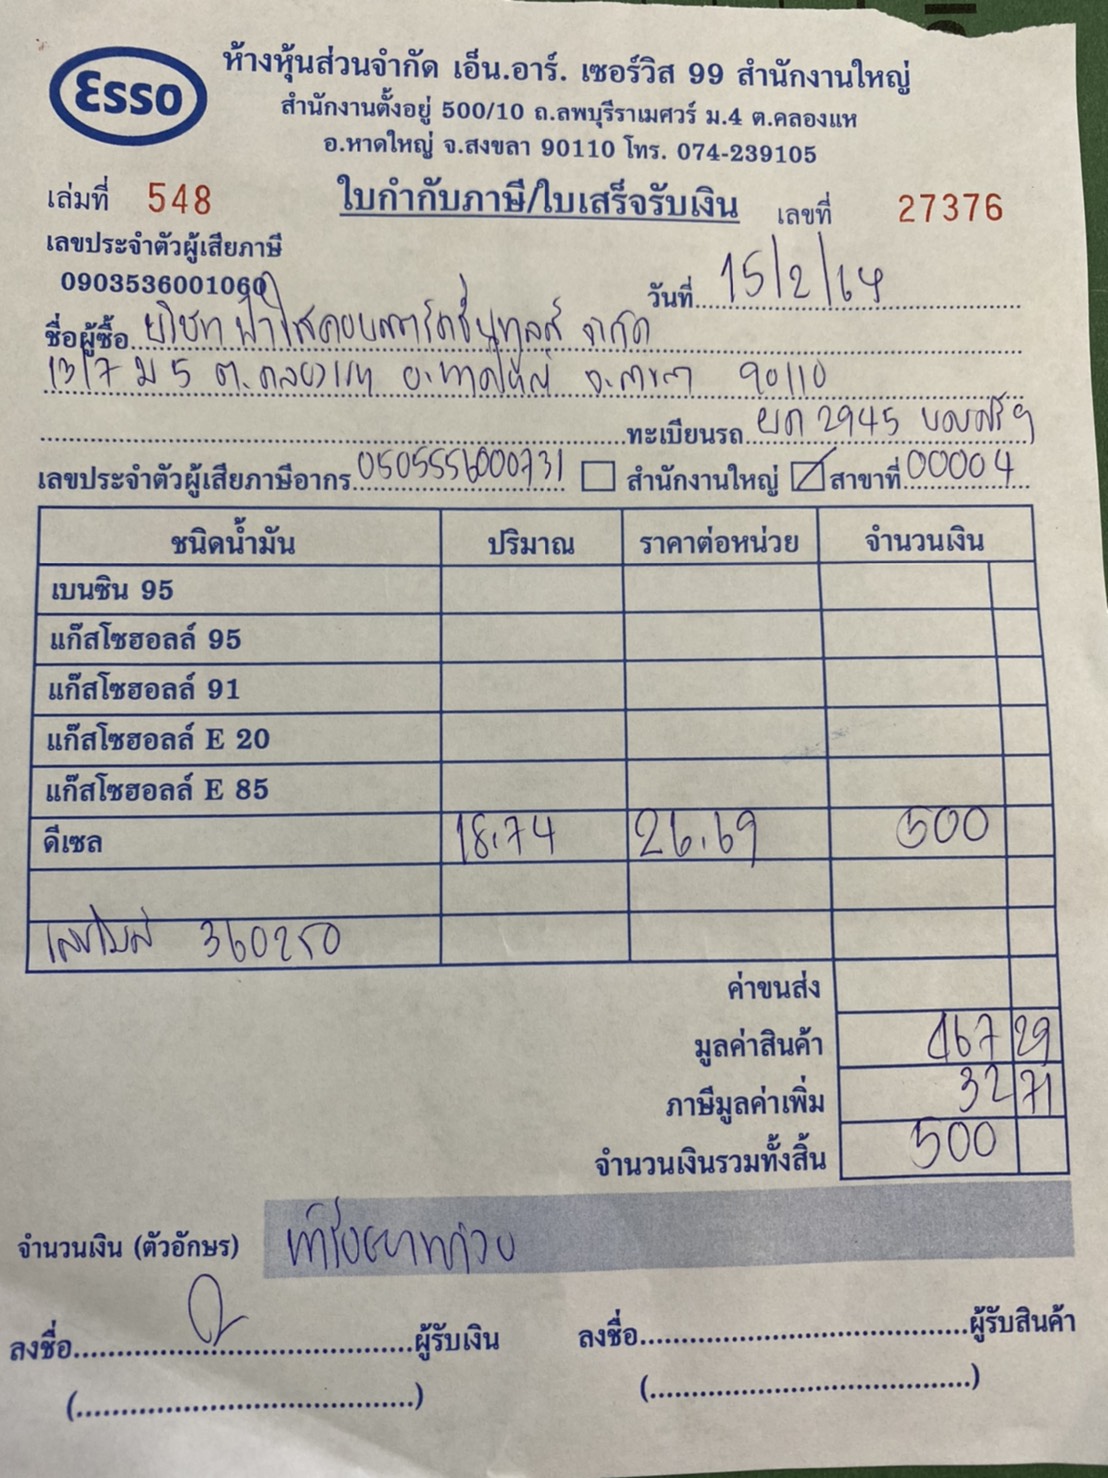 Esso
ห้างหุ้นส่วนจำกัด เอ็น.อาร์. เซอร์วิส 99 สำนักงานใหญ่
สำนักงานตั้งอยู่ 500/10 ถ.ลพบุรีราเมศวร์ ม.4 ต.คลองแห
อ.หาดใหญ่ จ.สงขลา 90110 โทร. 074-239105
เล่มที่ 548 ใบกำกับภาษี/ใบเสร็จรับเงิน เลขที่ 27376
เลขประจำตัวผู้เสียภาษี
0903536001060
วันที่ 15/2/64
ชื่อผู้ซื้อ บริษัท ฟ้าใสคอนสตรัคชั่นทูลส์ จำกัด
13/7 ม 5 ต.คลองแห อ.หาดใหญ่ จ.สงขลา 90110
ทะเบียนรถ 2945
เลขประจำตัวผู้เสียภาษีอากร 0505556000731 สำนักงานใหญ่ สาขาที่ 00004
ชนิดน้ำมัน ปริมาณ ราคาต่อหน่วย จำนวนเงิน
เบนซิน 95
แก๊สโซฮอลล์ 95
แก๊สโซฮอลล์ 91
แก๊สโซฮอลล์ E 20
แก๊สโซฮอลล์ E 85
ดีเซล 18.74 26.69 500
เลขไมล์ 360250
ค่าขนส่ง
มูลค่าสินค้า 467 29
ภาษีมูลค่าเพิ่ม 32 71
จำนวนเงินรวมทั้งสิ้น 500
จำนวนเงิน (ตัวอักษร) ห้าร้อยบาทถ้วน
ลงชื่อ ผู้รับเงิน ลงชื่อ ผู้รับสินค้า